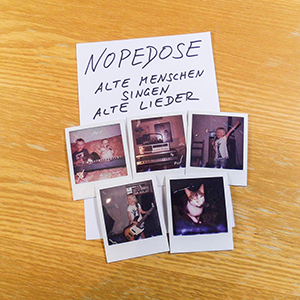 NOPEDOSE
ALTE MENSCHEN
SINGEN
ALTE LIEDER